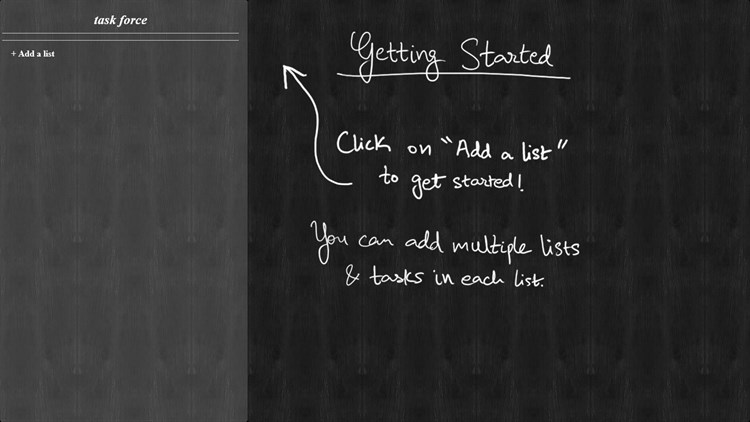 task force
+ Add a list
Getting Started
Click on "Add a list"
to get started!
You can add multiple lists
& tasks in each list.